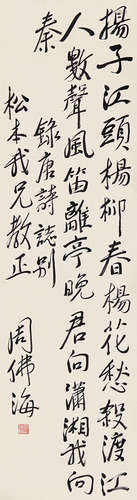 揚子江頭楊柳春楊花愁殺渡江
人數聲風笛離亭晚君向瀟湘我向
秦
錄唐詩誌別
松本我兄教正
周佛海